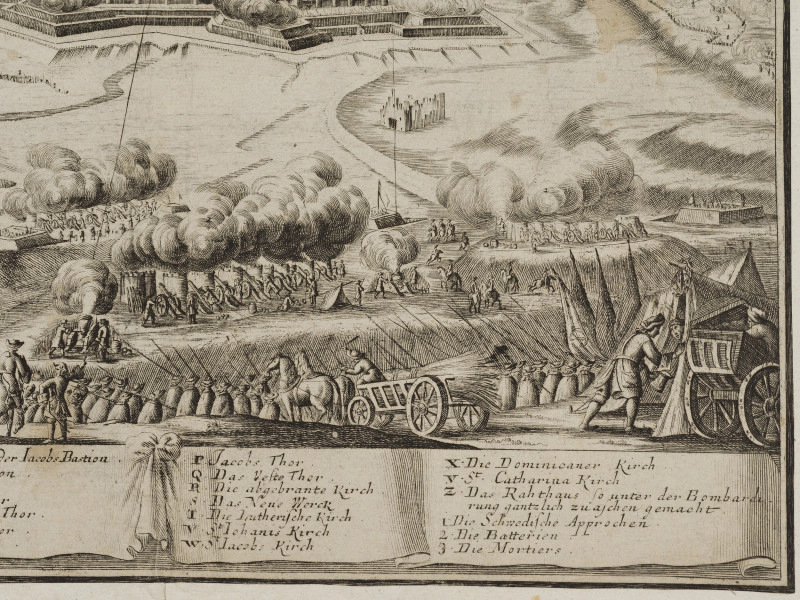 der Iacobs Bastion.
on.
or
Thor.
or.
P. Jacobs Thor
Q Das Veste Thor.
R Die abgebrante Kirch
S Das Neue Werck
T Die Lutherische Kirch
V St Iohanis Kirch
W St Iacobs Kirch.
X. Die Dominicaner Kirch
Y. St. Catharina Kirch
Z. Das Rahthaus so unter der Bombardi-
rung gantzlich zu aschen gemacht
1. Die Schwedische Approchen
2. Die Batterien
3. Die Mortiers.